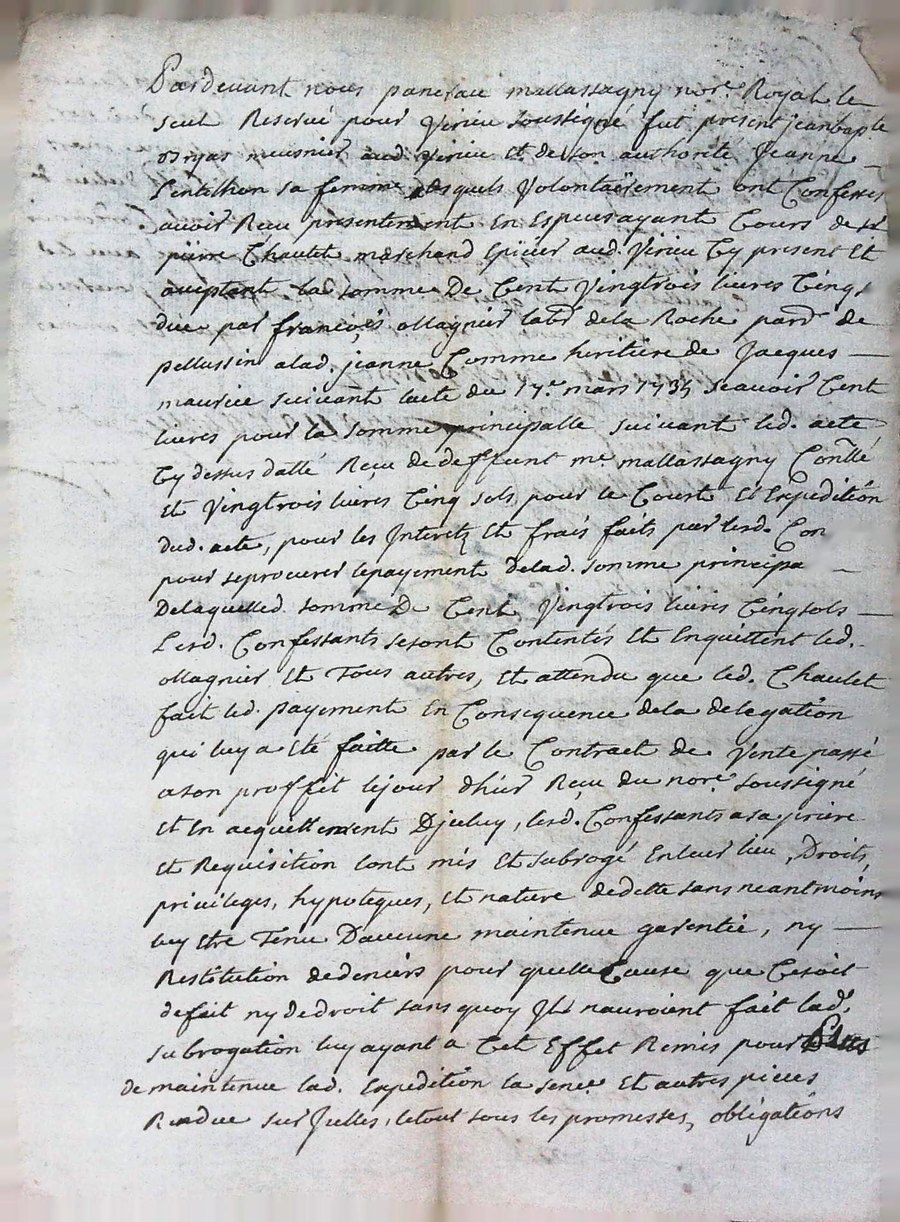 Pardevant nous pancrace mallassagny nore. Royal le
seul Reservé pour Virieu soussigné fut present jeanbaptte
oriar meusnier aud. Virieu et de son authorité Jeanne
Lentilhon sa femme lesquels Volontairement ont Confessé
avoir Reçu presentement En Especes ayant Cours de sr
pierre Chaulet marchand Epicier aud. Virieu Cy present Et
aceptant la somme De Cent Vingtrois livres Cinq s
due par françois ollagnier labr dela Roche parse de
pellussin alad. jeanne Comme heritiere de Jacques
maurice suivant lacte du 17e. mars 1734 sçavoir Cent
livres pour la somme principalle suivant led. acte
Cy dessus datté Reçu de deffunt me. mallassagny Conllé
Et Vingtrois livres Cinq sols pour le Coust Et Expedition
dud. acte, pour les Interetz Et frais faits par lesd. Con
pour seprocurer lepayement delad. somme principa
Delaquelled. somme De Cent Vingtrois livres Cinq sols
Lesd. Confessants sesont Contentés Et Enquittent led.
ollagnier Et Tous autres, Et attendu que led. Chaulet
fait led. payement En Consequence dela delegation
qui luy a Eté faitte par le Contract de Vente passé
ason proffit lejour d'hier Reçu du nore. soussigné
Et En acquittement Djceluy, lesd. Confessants asa priere
Et Requisition Lont mis Et subrogé Enleur lieu, Droits,
privileges, hypoteques, et nature dedette sans neantmoins
luy Etre Tenu Daucune maintenue garentie, ny
Restitution dedeniers pour quelle Cause que Cesoit
defait ny dedroit sans quoy Jls nauroient fait lad.
subrogation luy ayant a Cet Effet Remis pour plus
de maintenue lad. Expedition la sence. Et autres pieces
Rendue sur Jcelles, letout sous les promesses, obligations